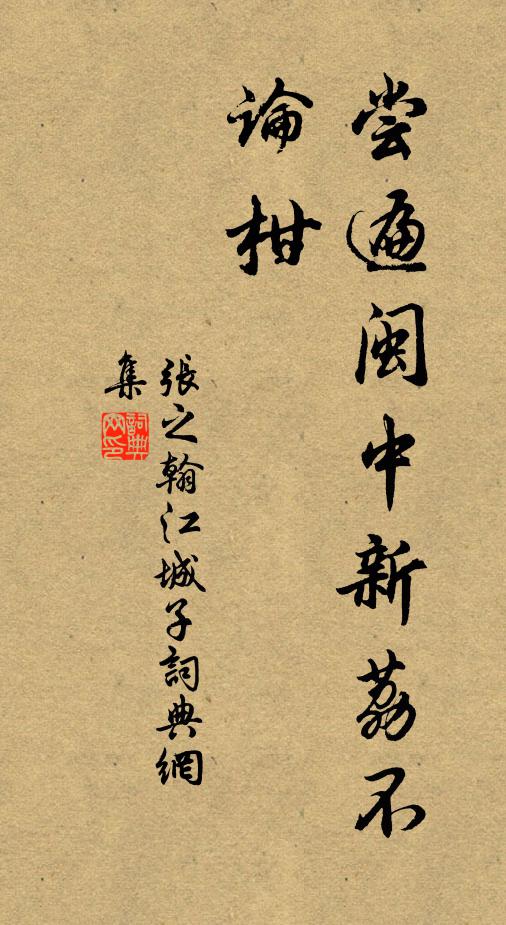 尝遍闽中新荔不
論柑
張之翰江城子詞典網
集
詞典网印